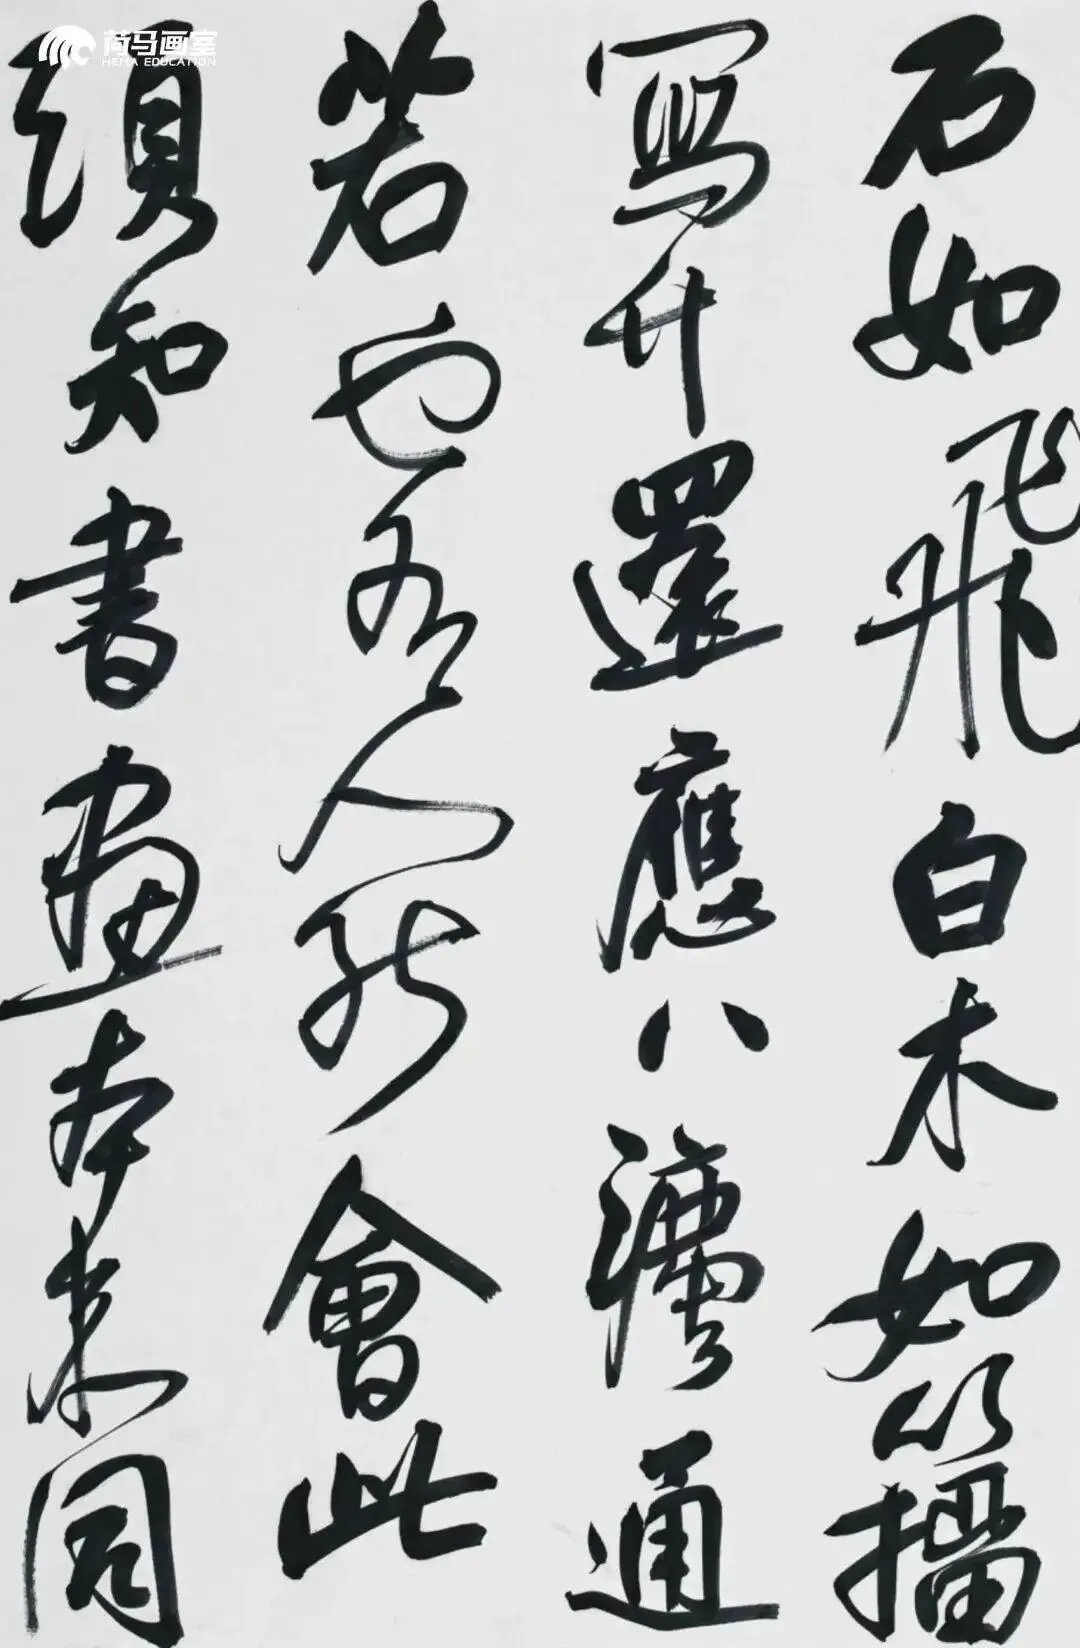 石如飛白木如籀
寫竹還應八灋通
若也有人能會此
須知書畫本來同
荷马画室
HEMA EDUCATION